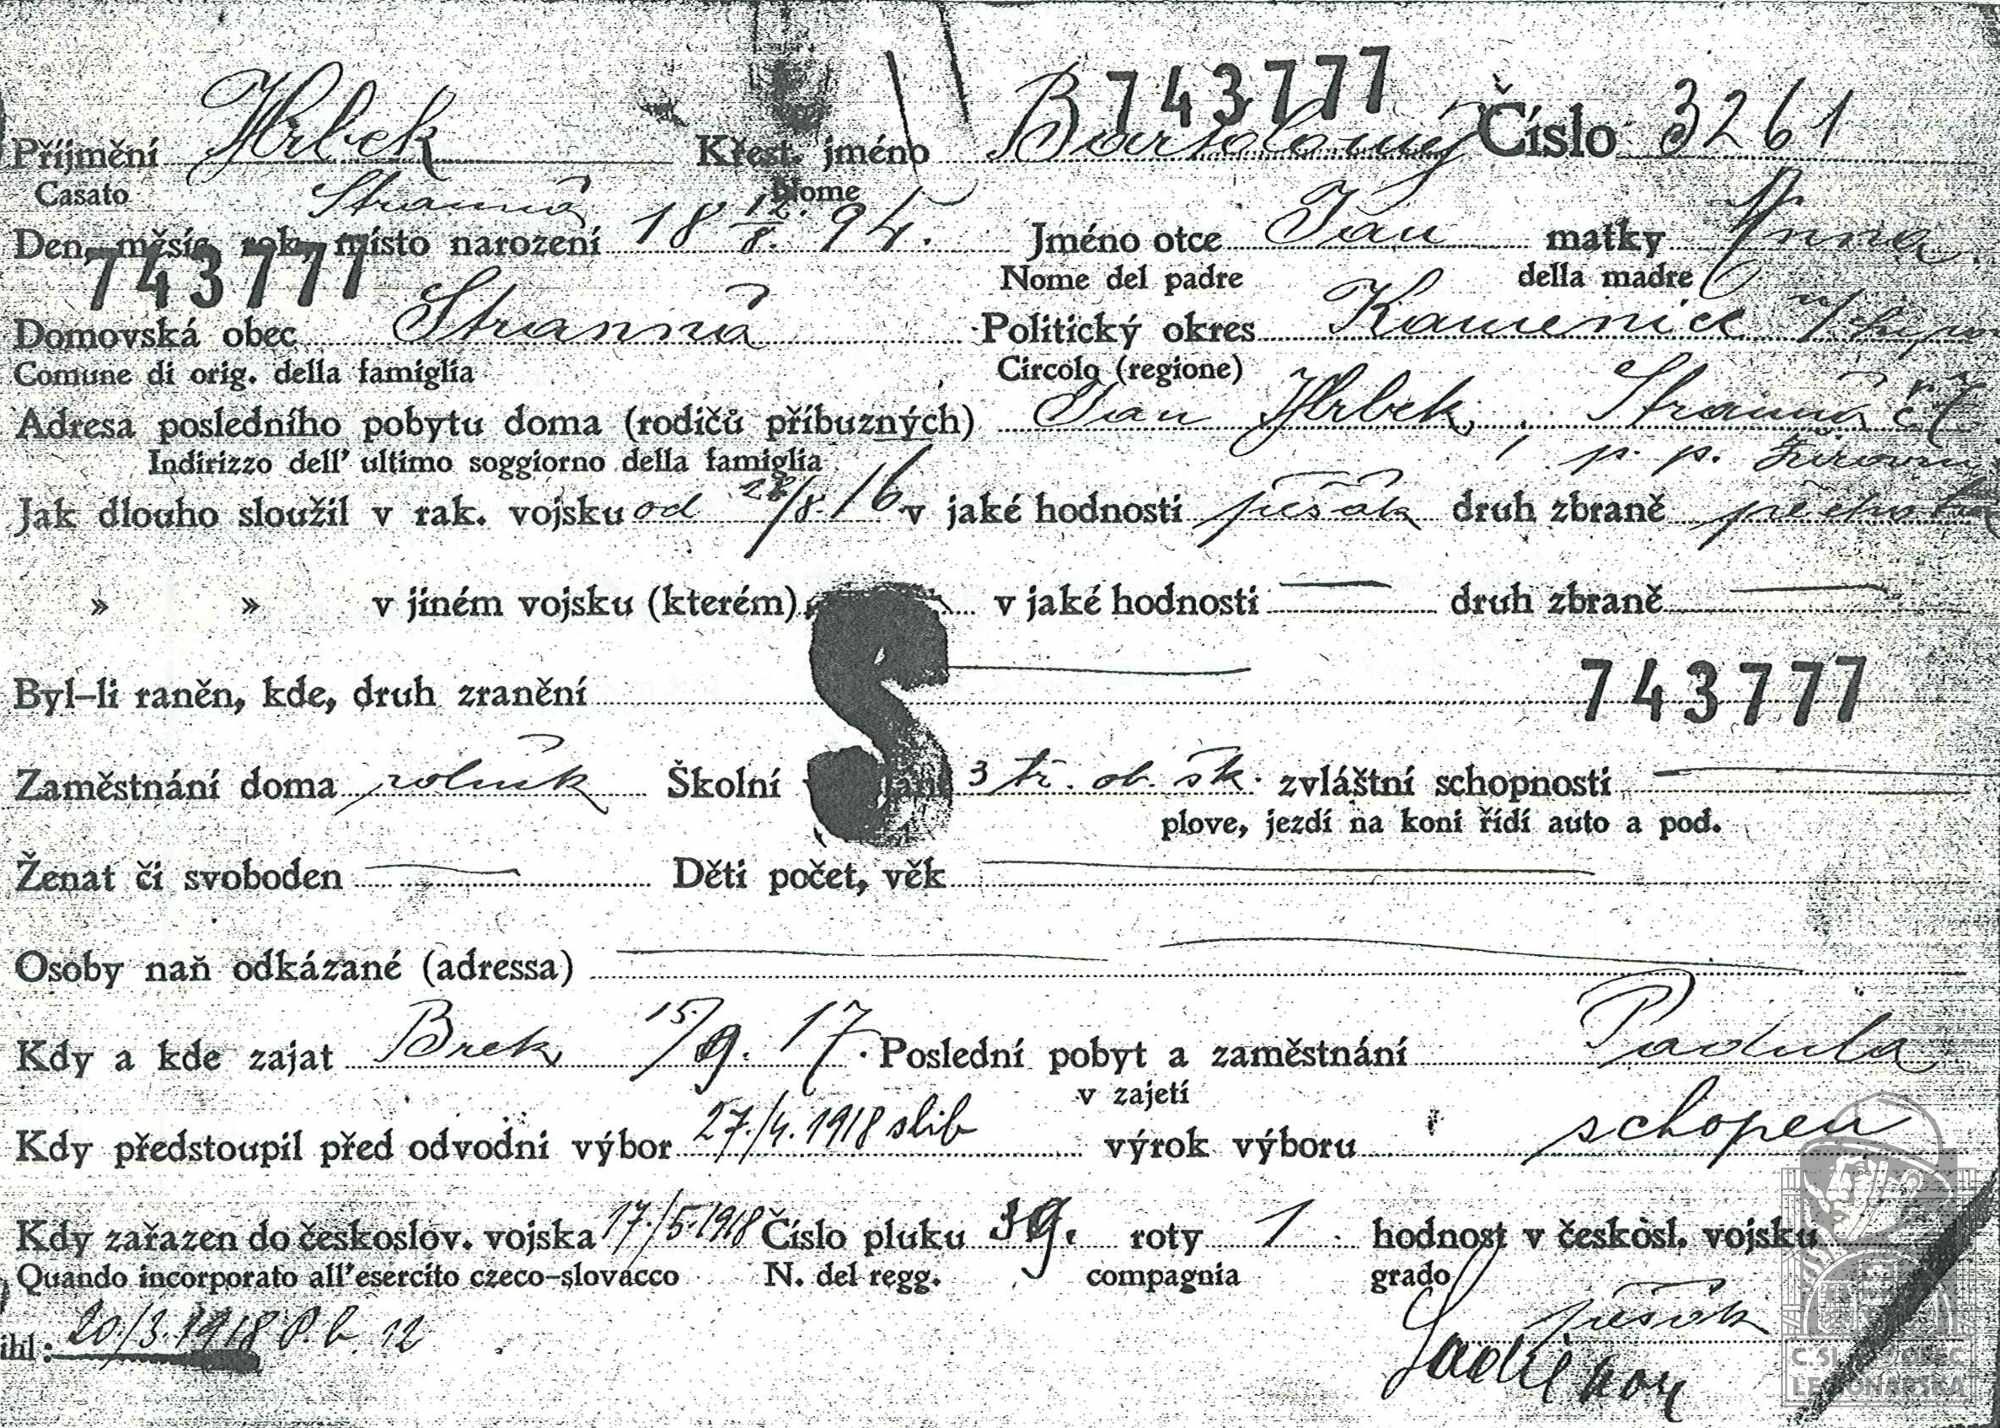 743777
Příjmení Hrbek Křest. jméno Bartoloměj Číslo 3261
Casato Nome
Stranná
Den, měsíc, rok, místo narození 18 12/8. 94. Jméno otce Jan matky Anna
Nome del padre della madre
743777
Domovská obec Stranná Politický okres Kamenice n/
Comune di orig. della famiglia Circolo (regione)
Adresa posledního pobytu doma (rodičů příbuzných) Jan Hrbek, Stranná č 7
Indirizzo dell' ultimo soggiorno della famiglia p. p.
Jak dlouho sloužil v rak. vojsku od /8. 16 v jaké hodnosti pěšák druh zbraně pěchota
» » v jiném vojsku (kterém) v jaké hodnosti druh zbraně
Byl-li raněn, kde, druh zranění
743777
S
Zaměstnání doma rolník Školní 3 tř. ob. šk. zvláštní schopnosti
plove, jezdí na koni řídí auto a pod.
Ženat či svoboden Děti počet, věk
Osoby naň odkázané (adressa)
Kdy a kde zajat Brek 15/9. 17. Poslední pobyt a zaměstnání Padula
v zajetí
Kdy předstoupil před odvodni výbor 27./4. 1918 slib výrok výboru schopen
Kdy zařazen do českoslov. vojska 17./5. 1918 Číslo pluku 39. roty 1. hodnost v českosl. vojsku
Quando incorporato all'esercito czeco-slovacco N. del regg. compagnia grado
pěšák
ihl: 20./3. 1918 12
LEGIONÁŘSKÁ